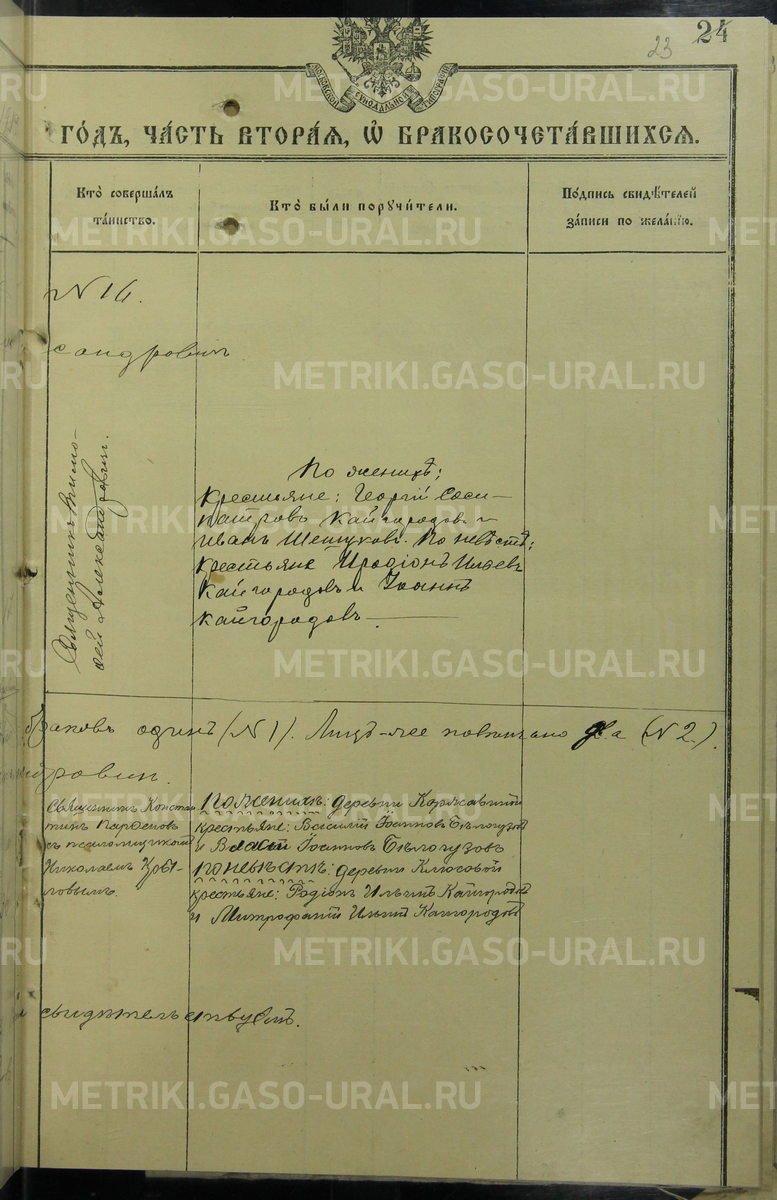 23 24
МОСКОВСКОЙ СѴНОДАЛЬНОЙ ТИПОГРАФІИ
ГО́ДЪ, ЧА́СТЬ ВТОРА́Я, Ѡ҆ БРАКОСОЧЕТА́ВШИХСЯ.
Кто̀ соверша́лъ
та́инство.
Кто̀ бы́ли поручи́тели.
По́дпись свидѣ́телей
за́писи по жела́нїю.
№ 16.
сандровичъ
Священникъ Тимо-
ѳей Александровичъ.
По женихѣ;
Крестьяне: Георгій Соси-
патровъ Кайгородовъ и
Иванъ Шешуковъ. По невѣстѣ;
крестьяне Иродіонъ Ильевъ
Кайгородовъ и Іоаннъ
Кайгородовъ
браковъ одинъ (№ 1). Лицъ-же повѣнчано два (№ 2).
Священникъ Констан
тинъ Парѳеновъ
съ псаломщикомъ
Николаемъ
ловымъ.
По женихѣ: деревни Коржавиной
крестьяне: Василій Іоанновъ Бѣлогузовъ
и Власій Іоанновъ Бѣлогузовъ
По невѣстѣ: деревни Ключевой
крестьяне: Родіонъ Ильинъ Кайгородовъ
и Митрофанъ Ильинъ Кайгородовъ
свидѣтельствуемъ.
METRIKI.GASO-URAL.RU